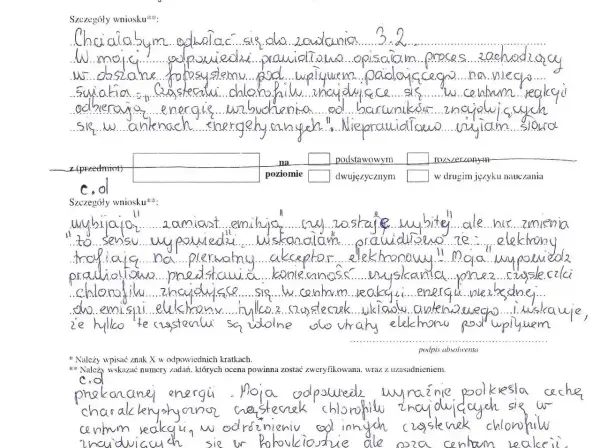 Szczegóły wniosku**:
Chciałabym odwołać się do zadania 3.2.
W mojej odpowiedzi prawidłowo opisałam proces zachodzący
w obszarze fotosystemu pod wpływem padającego na niego
światła: "Cząsteczki chlorofilu znajdujące się w centrum reakcji
odbierają energię wzbudzenia od barwników znajdujących
się w antenach energetycznych". Nieprawidłowo użyłam słowa
z (przedmiot)
na poziomie
podstawowym
rozszerzonym
dwujęzycznym
w drugim języku nauczania
c.d
Szczegóły wniosku**:
"wybijają" zamiast "emitują" czy "zostaje wybity" ale nie zmienia
to sensu wypowiedzi. Wskazałam prawidłowo że: "elektrony
trafiają na pierwotny akceptor elektronowy". Moja wypowiedź
prawidłowo przedstawia konieczność uzyskania przez cząsteczki
chlorofilu znajdujące się w centrum reakcji energii niezbędnej
do emisji elektronu tylko z cząsteczek układu antenowego i wskazuje,
że tylko te cząsteczki są zdolne do utraty elektronu pod wpływem
podpis absolwenta
* Należy wpisać znak X w odpowiednich kratkach.
** Należy wskazać numery zadań, których ocena powinna zostać zweryfikowana, wraz z uzasadnieniem.
c.d
przekazanej energii. Moja odpowiedź wyraźnie podkreśla cechę
charakterystyczną cząsteczek chlorofilu znajdujących się w
centrum reakcji, w odróżnieniu od innych cząsteczek chlorofilu
znajdujących się w fotoukładzie ale poza centrum reakcji.